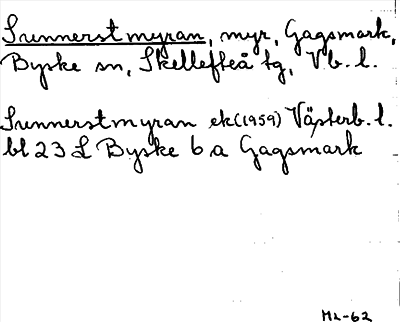 Sunnerstmyran, myr, Gagsmark,
Byske sn, Skellefteå tg, Vb. l.
Sunnerstmyran ek (1959) Västerb. l.
bl 23 L Byske 6 a Gagsmark
ML-62